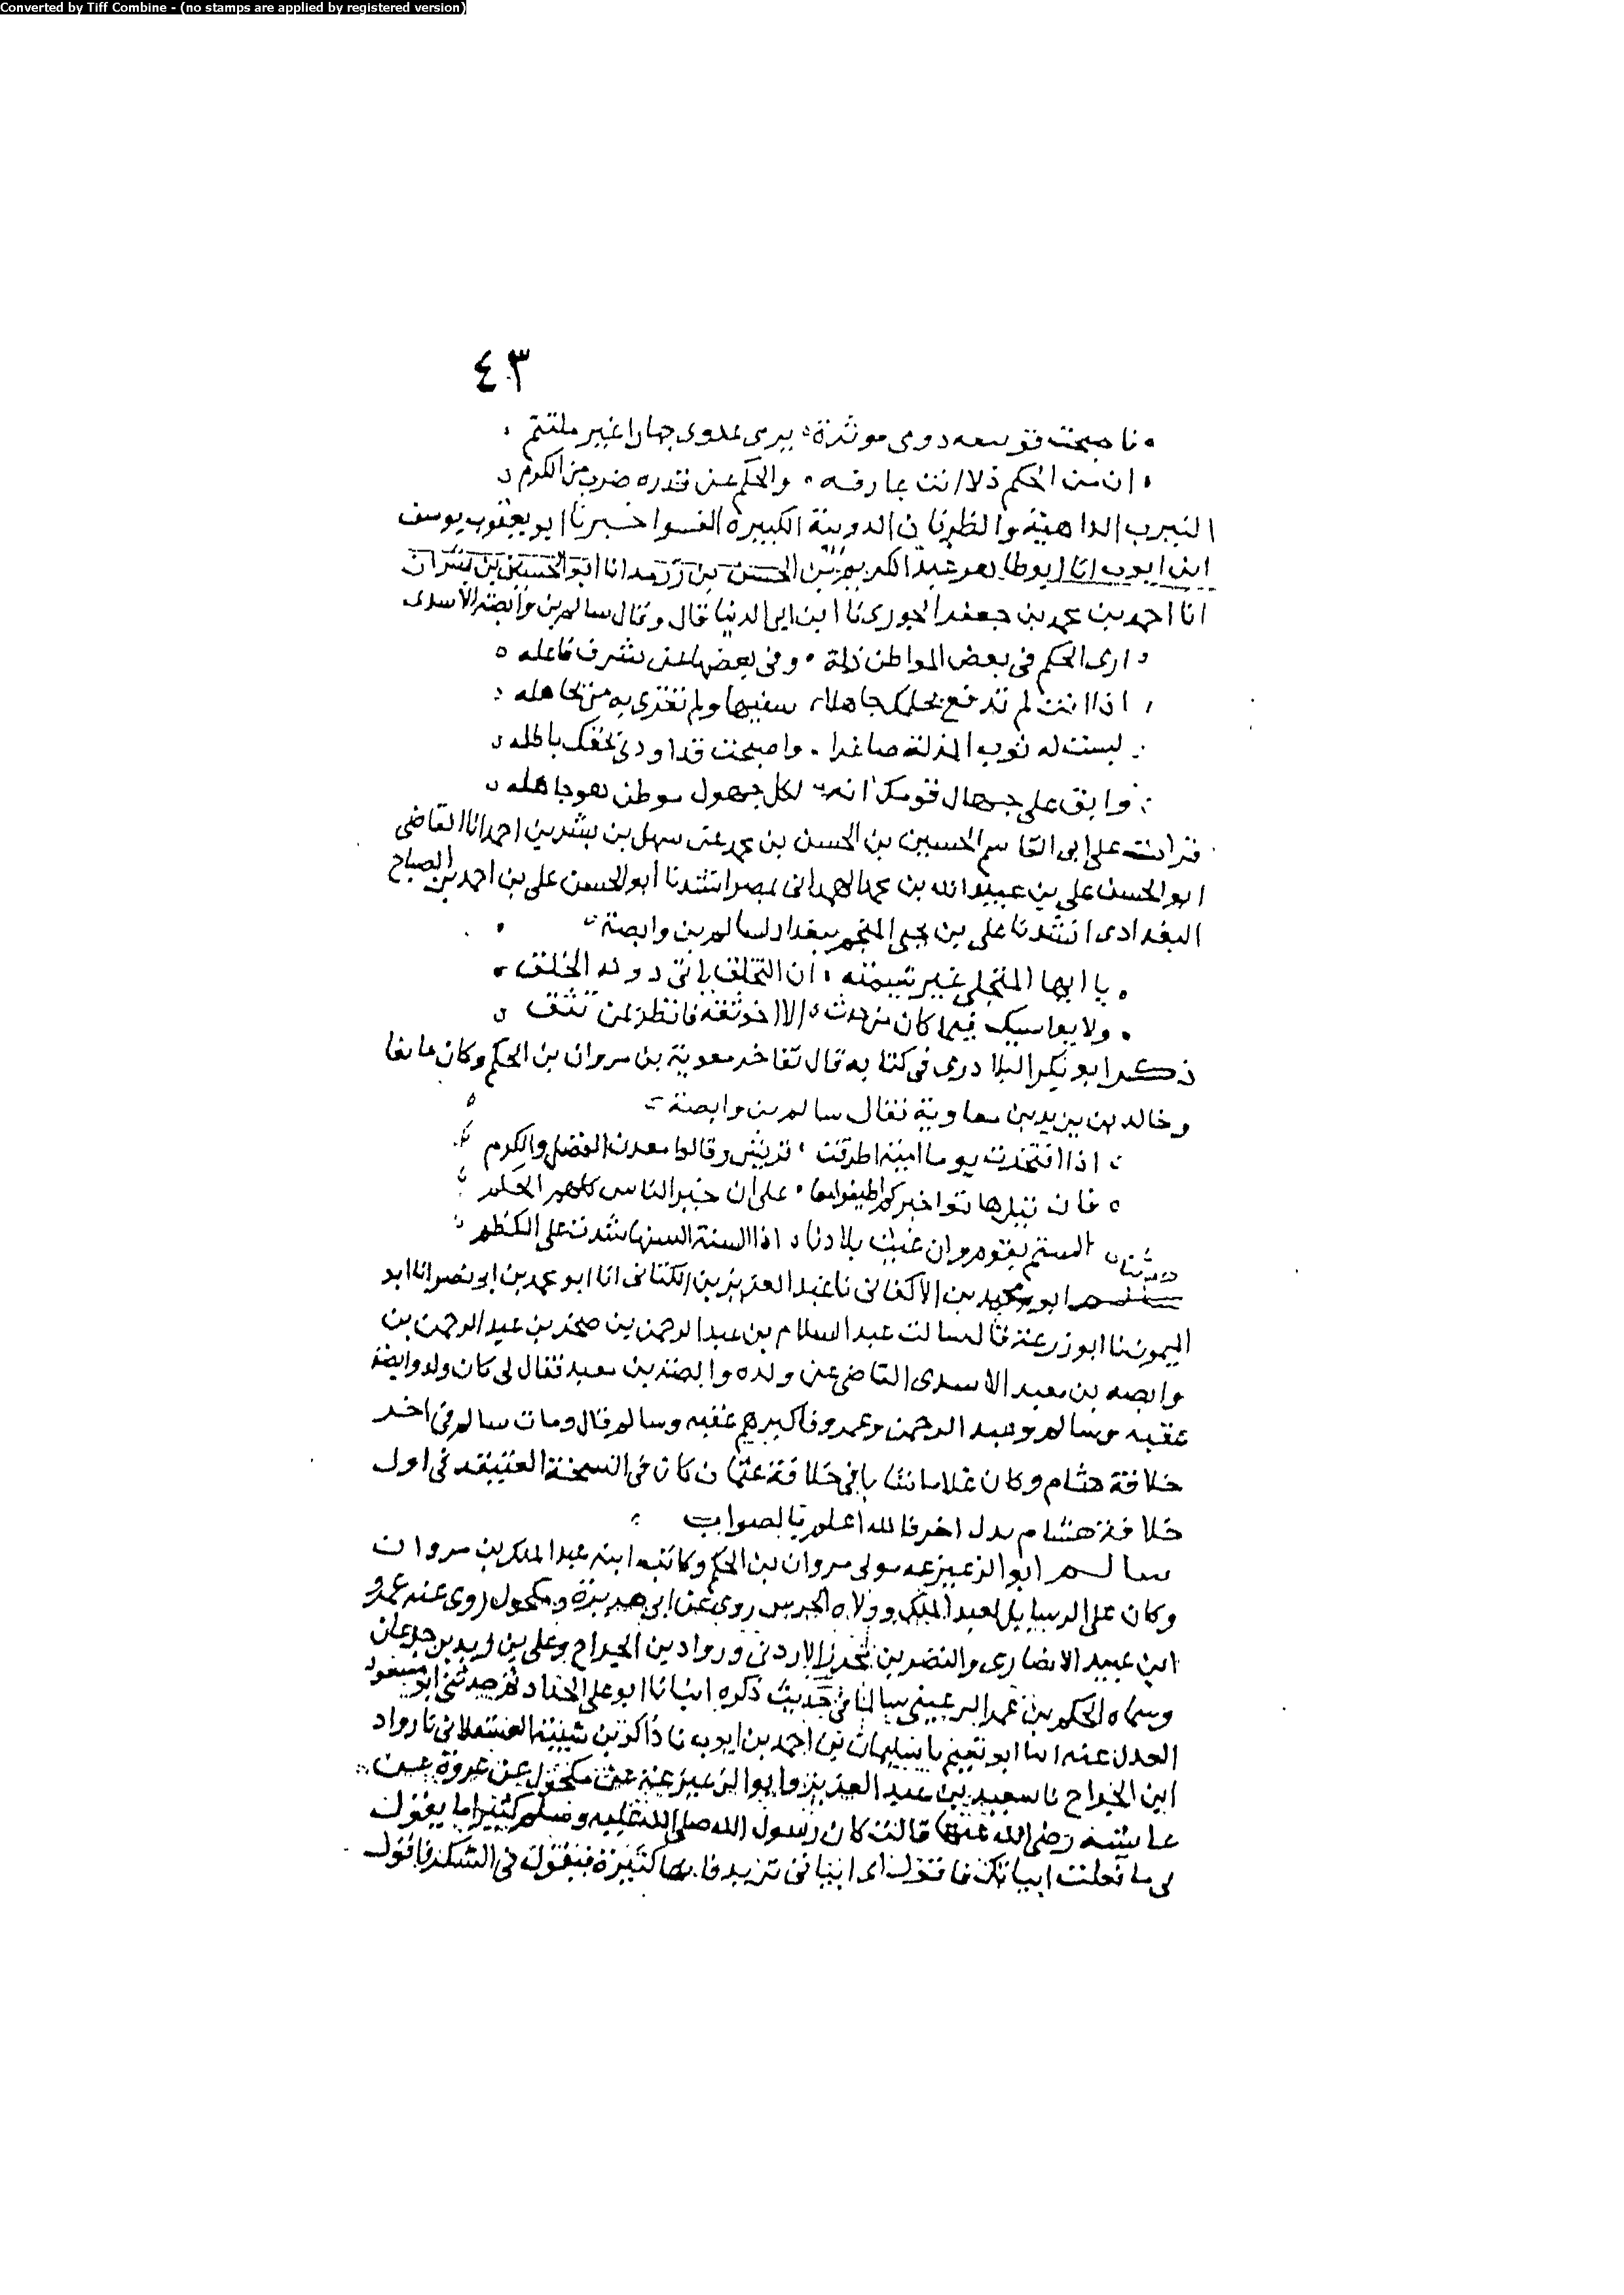 Converted by Tiff Combine - (no stamps are applied by registered version)
٤٣
فاصبحت قوسه دونى موترة يرمى عدوى جهارا غير ملتتم
ان من الحكم ذلا انت عارفه والحكم عن قدره ضرب من الكرم
النيرب الداهية والظربان الدويبة الكبيرة الفسوا خبرنا ابو يعقوب يوسف
ابن ايوب انا ابو طاهر عبد الكريم بن الحسن بن رزمه انا ابو الحسين بن بشران
انا احمد بن محمد بن جعفر الجوزى نا ابن ابى الدنيا قال وقال سالم بن وابصة الاسدى
ارى الحكم فى بعض المواطن ذلة وفى بعضها عز يشرف فاعله
اذا انت لم تدفع بحلمك جاهلا سفيها ولم تقرن به من تجاهله
لبست له ثوب المذلة صاغرا واصبحت قد اودى بحقك باطله
وابق على جهال قومك انه لكل جهول موطن هو جاهله
قرات على ابى القاسم الحسين بن الحسن بن محمد عن سهل بن بشر بن احمد انا القاضى
ابو الحسن على بن عبيد الله بن محمد الهمدانى بمصر انشدنا ابو الحسن على بن احمد بن الصباح
البغدادى انشدنا على بن يحيى المنجم ببغداد لسالم بن وابصة
يا ايها المتحلى غير شيمته ان التخلق ياتى دونه الخلق
ولا يواسيك فيما كان من حدث الا اخو ثقة فانظر لمن تثق
ذكر ابو بكر البلادرى فى كتابه قال تفاخر معوية بن مروان بن الحكم وكان مايقا
وخالد بن يزيد بن معاوية فقال سالم بن وابصة
اذا افتخرت يوما امية اطرقت قريش وقالوا معدن الفضل والكرم
فان قيل هاتوا خيركم اطبقوا معا على ان خير الناس كلهم الحكم
الستم بنو مروان غيث بلادنا اذا السنة الشهبا شدت على الكظم
حدثنا
ابو محمد بن الاكفانى نا عبد العزيز بن الكتانى انا ابو محمد بن ابى نصر انا ابو
الميمون نا ابو زرعة قال سالت عبد السلام بن عبد الرحمن بن صخر بن عبد الرحمن بن
وابصه بن معبد الاسدى القاضى عن ولده وابصة بن معبد فقال لى كان ولد وابصة
عقبه وسالم وعبد الرحمن وعمرو فاكبرهم عقبه وسالم قال ومات سالم فى اخر
خلافة هشام وكان غلاما شابا فى خلافة عثمان كان فى النسخة العتيقة فى اول
خلافة هشام بدل اخر فالله اعلم بالصواب
سالم ابو الزعيزعه مولى مروان بن الحكم وكاتبه ابنه عبد الملك بن مروان
وكان على الرسايل لعبد الملك وولاه الحرس روى عن ابى هريرة ومكحول روى عنه عمرو
ابن عبيد الانصارى والنضر بن محرز الاردنى ورواد بن الجراح وعلى بن زيد بن جدعان
وسماه الحكم بن عمر الرعينى سالما فى حديث ذكره انبانا ابو على الحداد ثم حدثنى ابو مسعود
العدل عنه انا ابو نعيم نا سليمان بن احمد بن ايوب نا ذاكر بن شيبة العسقلانى نا رواد
ابن الجراح نا سعيد بن عبد العزيز وابو الزعيزعة عن مكحول عن عروة عن
عايشة رضى الله عنها قالت كان رسول الله صلى الله عليه وسلم كثيرا ما يقول
لى ما فعلت ابياتك فاقول اى ابياتى تريد فانها كثيرة فيقول فى الشكر فاقول